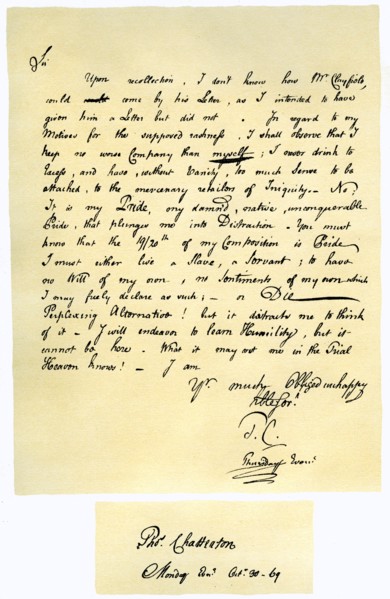 Sir
Upon recollection, I don't know how Mr Clayfield,
could come by his Letter, as I intended to have
given him a Letter but did not. In regard to my
Motives for the supposed rashness, I shall observe that I
keep no worse Company than myself; I never drink to
Excess, and have, without Vanity, too much Sense to be
attached, to the mercenary retailers of Iniquity.— No:
It is my Pride, my damn'd, native, unconquerable
Pride, that plunges me into Distraction. You must
know that the 19/20th of my Composition is Pride—
I must either live a Slave, a Servant; to have
no Will of my own, no Sentiments of my own which
I may freely declare as such;— or Die—
Perplexing Alternative! but it distracts me to think
of it— I will endeavor to learn Humility, but it
cannot be here. What it may cost me in the Trial
Heaven knows!— I am
Yr much Obliged unhappy
T. C.
Thursday Even:
Thos. Chatterton
Monday Octr. 30-69